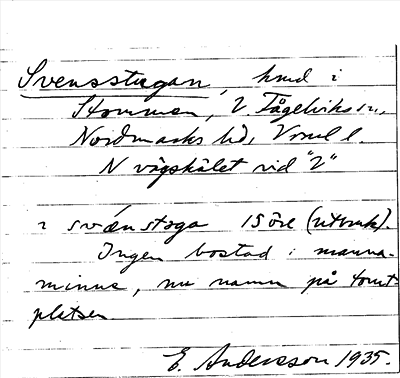 Svensstugan, hmd i
Stommen, V. Fågelviks sn,
Nordmarks hd, Vrml l.
N vägskälet vid "2"
i svænstoga 15 öre (uttryck).
Ingen bostad i manna-
minne, nu namn på tomt-
platsen
E. Andersson 1935.